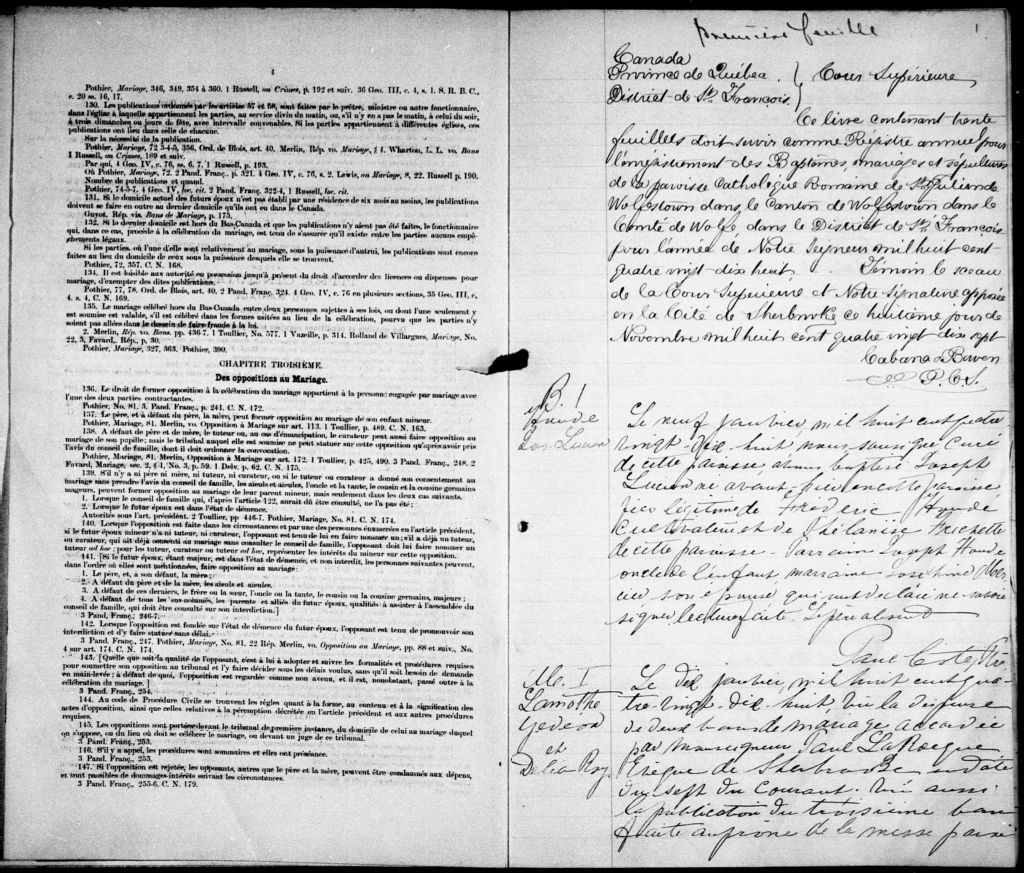 4
Pothier, Mariage, 346, 349, 354 à 360. 1 Russell, on Crimes, p. 192 et suiv. 36 Geo. III, c. 4, s. 1, S. R. B. C.,
c. 20 ss. 16, 17.
130. Les publications ordonnées par les articles 57 et 58, sont faites par le prêtre, ministre ou autre fonctionnaire,
dans l'église à laquelle appartiennent les parties, au service divin du matin, ou, s'il n'y en a pas le matin, à celui du soir,
à trois dimanches ou jours de fête, avec intervalle convenables. Si les parties appartiennent à différentes églises, ces
publications ont lieu dans celle de chacune.
Sur la nécessité de la publication.
Pothier, Mariage, 72 3-4-5, 356, Ord. de Blois, art. 40. Merlin, Rép. vo. Mariage, § 4. Wharton, L. L. vo. Bans
1 Russell, on Crimes, 189 et suiv.
Par qui, 4 Geo. IV, c. 76, ss. 6, 7. 1 Russell, p. 193.
Où Pothier, Mariage, 72. 2 Pand. Franç. p. 321. 4 Geo. IV, c. 76, s. 2. Lewis, on Mariage, 8, 22. Russell p. 190.
Nombre de publications et quand.
Pothier, 74-5-7. 4 Geo. IV, loc. cit. 2 Pand. Franç. 322-4, 1 Russell, loc. cit.
131. Si le domicile actuel des futurs époux n'est pas établi par une résidence de six mois au moins, les publications
doivent se faire en outre au dernier domicile qu'ils ont eu dans le Canada.
Guyot, Rép. vis Bans de Mariage, p. 175.
132. Si le dernier domicile est hors du Bas-Canada et que les publications n'y aient pas été faites, le fonctionnaire
qui, dans ce cas, procède à la célébration du mariage, est tenu de s'assurer qu'il existe entre les parties aucuns empê-
chements légaux.
Si les parties, ou l'une d'elles sont relativement au mariage, sous la puissance d'autrui, les publications sont encore
faites au lieu du domicile de ceux sous la puissance desquels elle se trouvent.
Pothier, 72, 357. C. N. 168.
134. Il est loisible aux autorités en possession jusqu'à présent du droit d'accorder des licences ou dispenses pour
mariage, d'exempter des dites publications.
Pothier, 77, 78. Ord. de Blois, art. 40. 2 Pand. Franç. 324. 4 Geo. IV, c. 76 en plusieurs sections, 35 Geo. III, c,
4. s. 4, C. N. 169.
135. Le mariage célébré hors du Bas-Canada, entre deux personnes sujettes à ses lois, ou dont l'une seulement y
est soumise est valable, s'il est célébré dans les formes usitées au lieu de la célébration, pourvu que les parties n'y
soient pas allées dans le dessein de faire fraude à la loi.
2. Merlin, Rép. vo. Bans. pp. 436-7. 1 Toullier, No. 577. 1 Vazeille, p. 314. Rolland de Villargues, Mariage, No.
22, 3, Favard, Rép., p. 30.
Pothier, Mariage, 327, 363. Pothier, 390.
CHAPITRE TROISIÈME.
Des oppositions au Mariage.
136. Le droit de former opposition à la célébration du mariage appartient à la personne engagée par mariage avec
l'une des deux parties contractantes.
Pothier, No. 81, 3. Pand. Franç., p. 241. C. N. 172.
137. Le père, et à défaut du père, la mère, peut former opposition au mariage de son enfant mineur.
Pothier, Mariage, 81. Merlin, vo. Opposition à Mariage sur art. 113, 1 Toullier, p. 489. C. N. 163.
138. A défaut de père et de mère, le tuteur ou, au cas d'émancipation, le curateur peut aussi faire opposition au
mariage de son pupille; mais le tribunal auquel elle est soumise ne peut statuer sur cette opposition qu'après avoir pris
l'avis du conseil de famille, dont il doit ordonner la convocation.
Pothier, Mariage, 81, Merlin, Opposition à Mariage sur art. 172. 1 Toullier, p. 425, 490. 3 Pand. Franç., 248. 2
Favard, Mariage, sec. 2, § 1, No. 3, p. 59. 1 Delv. p. 62. C. N. 175.
139. S'il n'y a ni père ni mère, ni tuteur, ni curateur, ou si le tuteur ou curateur a donné son consentement au
mariage sans prendre l'avis du conseil de famille, les aïeuls et aïeules, l'oncle et la tante, le cousin et la cousine germains
majeurs, peuvent former opposition au mariage de leur parent mineur, mais seulement dans les deux cas suivants.
1. Lorsque le conseil de famille qui, d'après l'article 122, aurait dû être consulté, ne l'a pas été;
2. Lorsque le futur époux est dans l'état de démence.
Autorités sous l'art. précédent. 2 Toullier, pp 446-7. Pothier, Mariage, No. 81. C. N. 174.
140. Lorsque l'opposition est faite dans les circonstances et par une des personnes énumérées en l'article précédent,
si le futur époux mineur n'a ni tuteur, ni curateur, l'opposant est tenu de lui en faire nommer un; s'il a déjà un tuteur,
ou curateur, qui ait déjà consenti au mariage sans consulter le conseil de famille, l'opposant doit lui faire nommer un
tuteur ad hoc; pour les tuteur, curateur ou tuteur ad hoc, représenter les intérêts du mineur sur cette opposition.
141. [Si le futur époux, étant majeur, est dans l'état de démence, et non interdit, les personnes suivantes peuvent,
dans l'ordre où elles sont mentionnées, faire opposition au mariage:
1. Le père, et, à son défaut, la mère;
2. A défaut du père et de la mère, les aïeuls et aïeules.
3. A défaut de ces derniers, le frère ou la sœur, l'oncle ou la tante, le cousin ou la cousine germains, majeurs;
4. A défaut de tous les sus-nommés, les parents et alliés du futur époux, qualifiés à assister à l'assemblée du
conseil de famille, qui doit être consulté sur son interdiction.]
3 Pand. Franç., 246-7.
142. Lorsque l'opposition est fondée sur l'état de démence du futur époux, l'opposant est tenu de promouvoir son
interdiction et d'y faire statuer sans délai.
3 Pand. Franç., 247. Pothier, Mariage, No. 81. 22 Rép. Merlin, vo. Opposition au Mariage, pp. 88 et suiv., No.
4 sur art. 174. C. N. 174.
143. [Quelle que soit la qualité de l'opposant, c'est à lui à adopter et suivre les formalités et procédures requises
pour soumettre son opposition au tribunal et l'y faire décider sous les délais voulus, sans qu'il soit besoin de demande
en main-levée; à défaut de quoi, l'opposition est regardée comme non avenu, et il est, nonobstant, passé outre à la
célébration du mariage.]
3 Pand. Franç., 254.
144. Au code de Procédure Civile se trouvent les règles quant à la forme, au contenu et à la signification des
actes d'opposition, ainsi que celles relatives à la péremption décrétée en l'article précédent et aux autres procédures
requises.
145. Les oppositions sont portées devant le tribunal de première instance, du domicile de celui au mariage duquel
on s'oppose, ou du lieu où doit se célébrer le mariage, ou devant un juge de ce tribunal.
3 Pand. Franç., 253.
146. S'il y a appel, les procédures sont sommaires et elles ont préséance.
3 Pand. Franç., 253.
147. Si l'opposition est rejetée, les opposants, autres que le père et la mère, peuvent être condamnés aux dépens,
et sont passibles de dommages-intérêts suivant les circonstances.
3 Pand. Franç., 255-6. C. N. 179.
première feuille
1
Canada
Province de Québec
District de St. François.
Cour Supérieure
Ce livre contenant trente
feuilles doit servir comme Régistre annuel pour
l'enregistrement des Baptêmes, mariages et sépultures
de la paroisse Catholique Romaine de St. Julien de
Wolfestown dans le Canton de Wolfestown dans le
Comté de Wolfe, dans le District de St. François
pour l'année de Notre Seigneur mil huit cent
quatre vingt dix huit. Témoin le sceau
de la Cour Supérieure et Notre signature apposée
en la Cité de Sherbrooke ce huitième jour de
Novembre mil huit cent quatre vingt dix sept
Cabana & Bowen
P.C.S.
B. 1
Houde
Jos. Lucien
Le neuf janvier mil huit cent quatre
vingt-dix-huit nous soussigné curé
de cette paroisse avons baptisé Joseph
Lucien né avant-hier en cette paroisse
fils légitime de Frédéric Houde
cultivateur et de Phélanise Frechette
de cette paroisse. Parrain Joseph Houde
oncle de l'enfant, marraine Joséphine
son épouse qui ont déclaré ne savoir
signer lecture faite.
M. 1
Lamothe
Gédéon
et
Délia Roy
Le dix janvier, mil huit cent qua-
tre-vingt-dix-huit, vu la dispense
de deux bans de mariage accordée
par monseigneur Paul LaRocque
Évêque de Sherbrooke en date
du sept du courant. Vu aussi
la publication du troisième ban
faite au prône de la messe parois